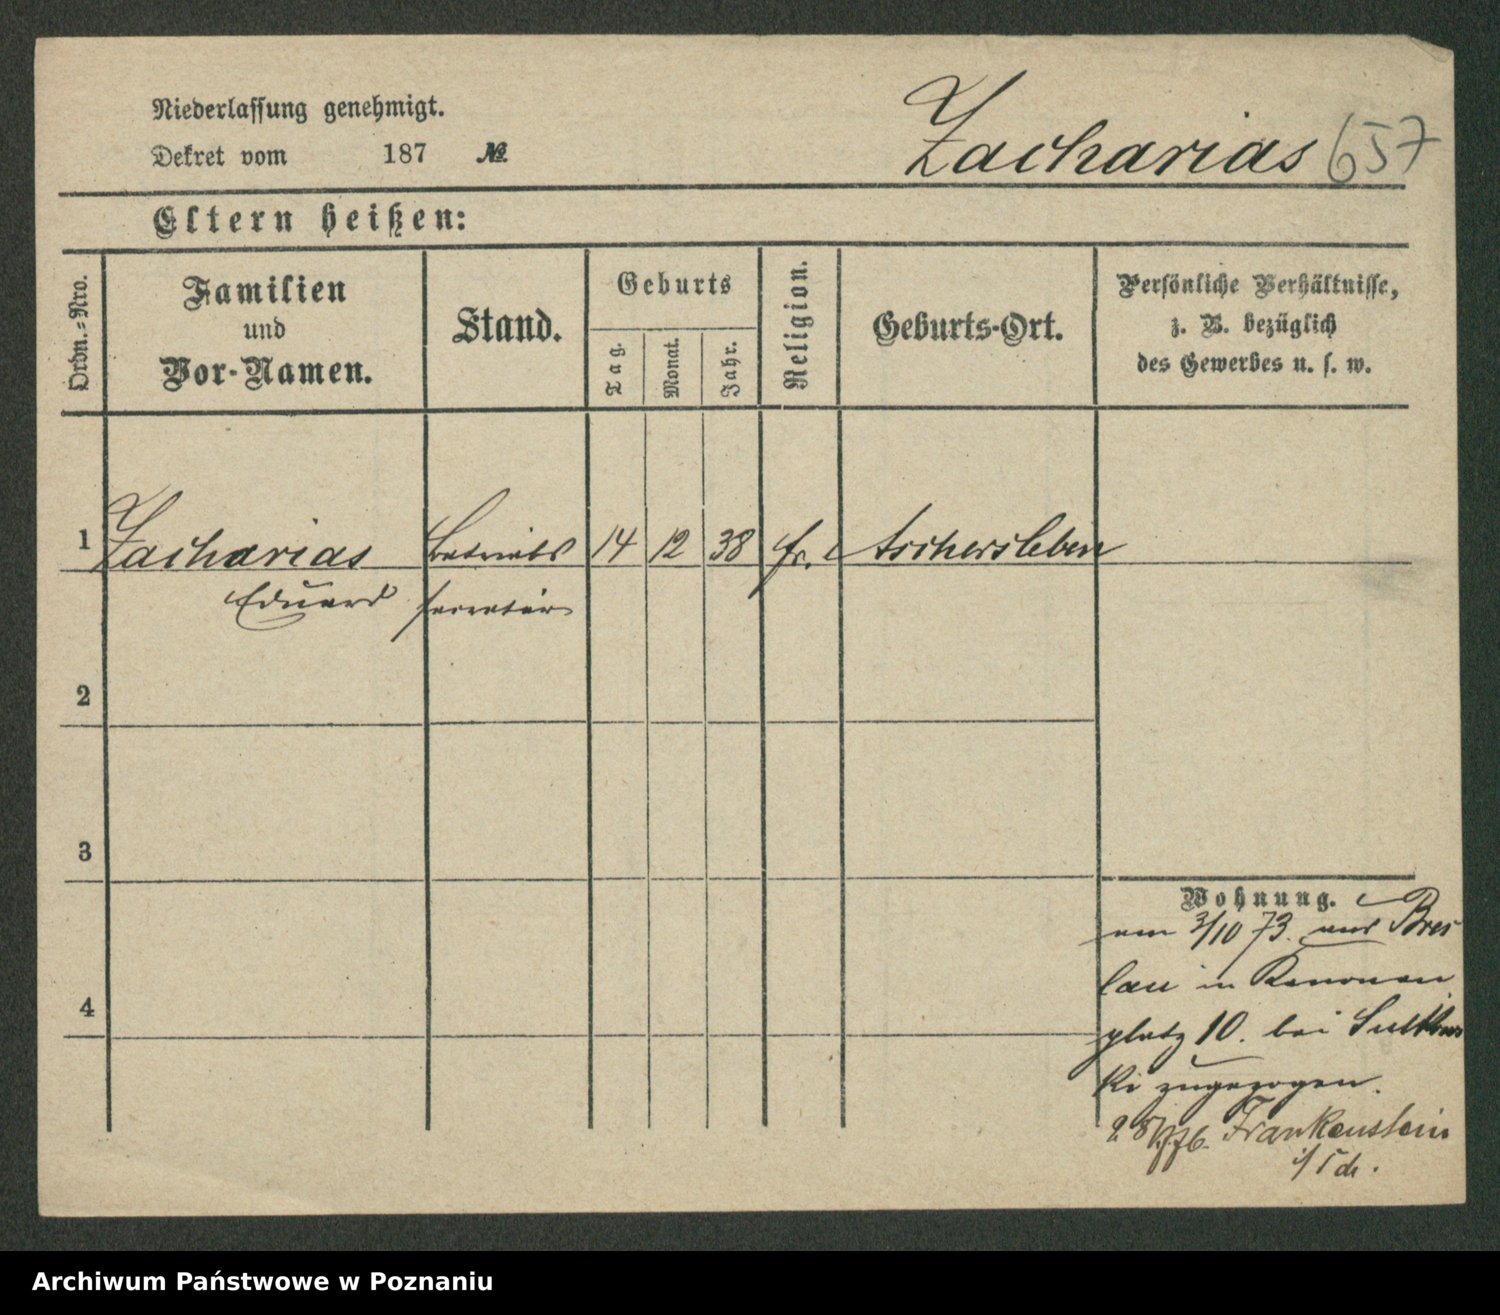 Niederlassung genehmigt.
Zacharias 657
Dekret vom 187 №
Eltern heißen:
Ordn.-Nro.
Familien
und
Vor-Namen.
Stand.
Geburts
Tag.
Monat.
Jahr.
Religion.
Geburts-Ort.
Persönliche Verhältnisse,
z. B. bezüglich
des Gewerbes u. s. w.
1 Zacharias Betriebs 14 12 38 Aschersleben
Eduard secretär
2
3
4
Wohnung.
am 3/10 73. aus Bres
lau in Kanonen
platz 10. bei
ki zugezogen.
Frankenstein
i/Sch.
Archiwum Państwowe w Poznaniu